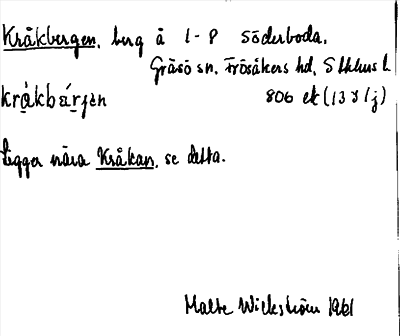 Kråkbergen, berg å 1-P Söderboda,
Gräsö sn, Frösåkers hd, Sthlms l.
kråkbärjən 806 ek (13 I 1j)
Ligger nära Kråkan, se detta.
Malte Wickström 1961